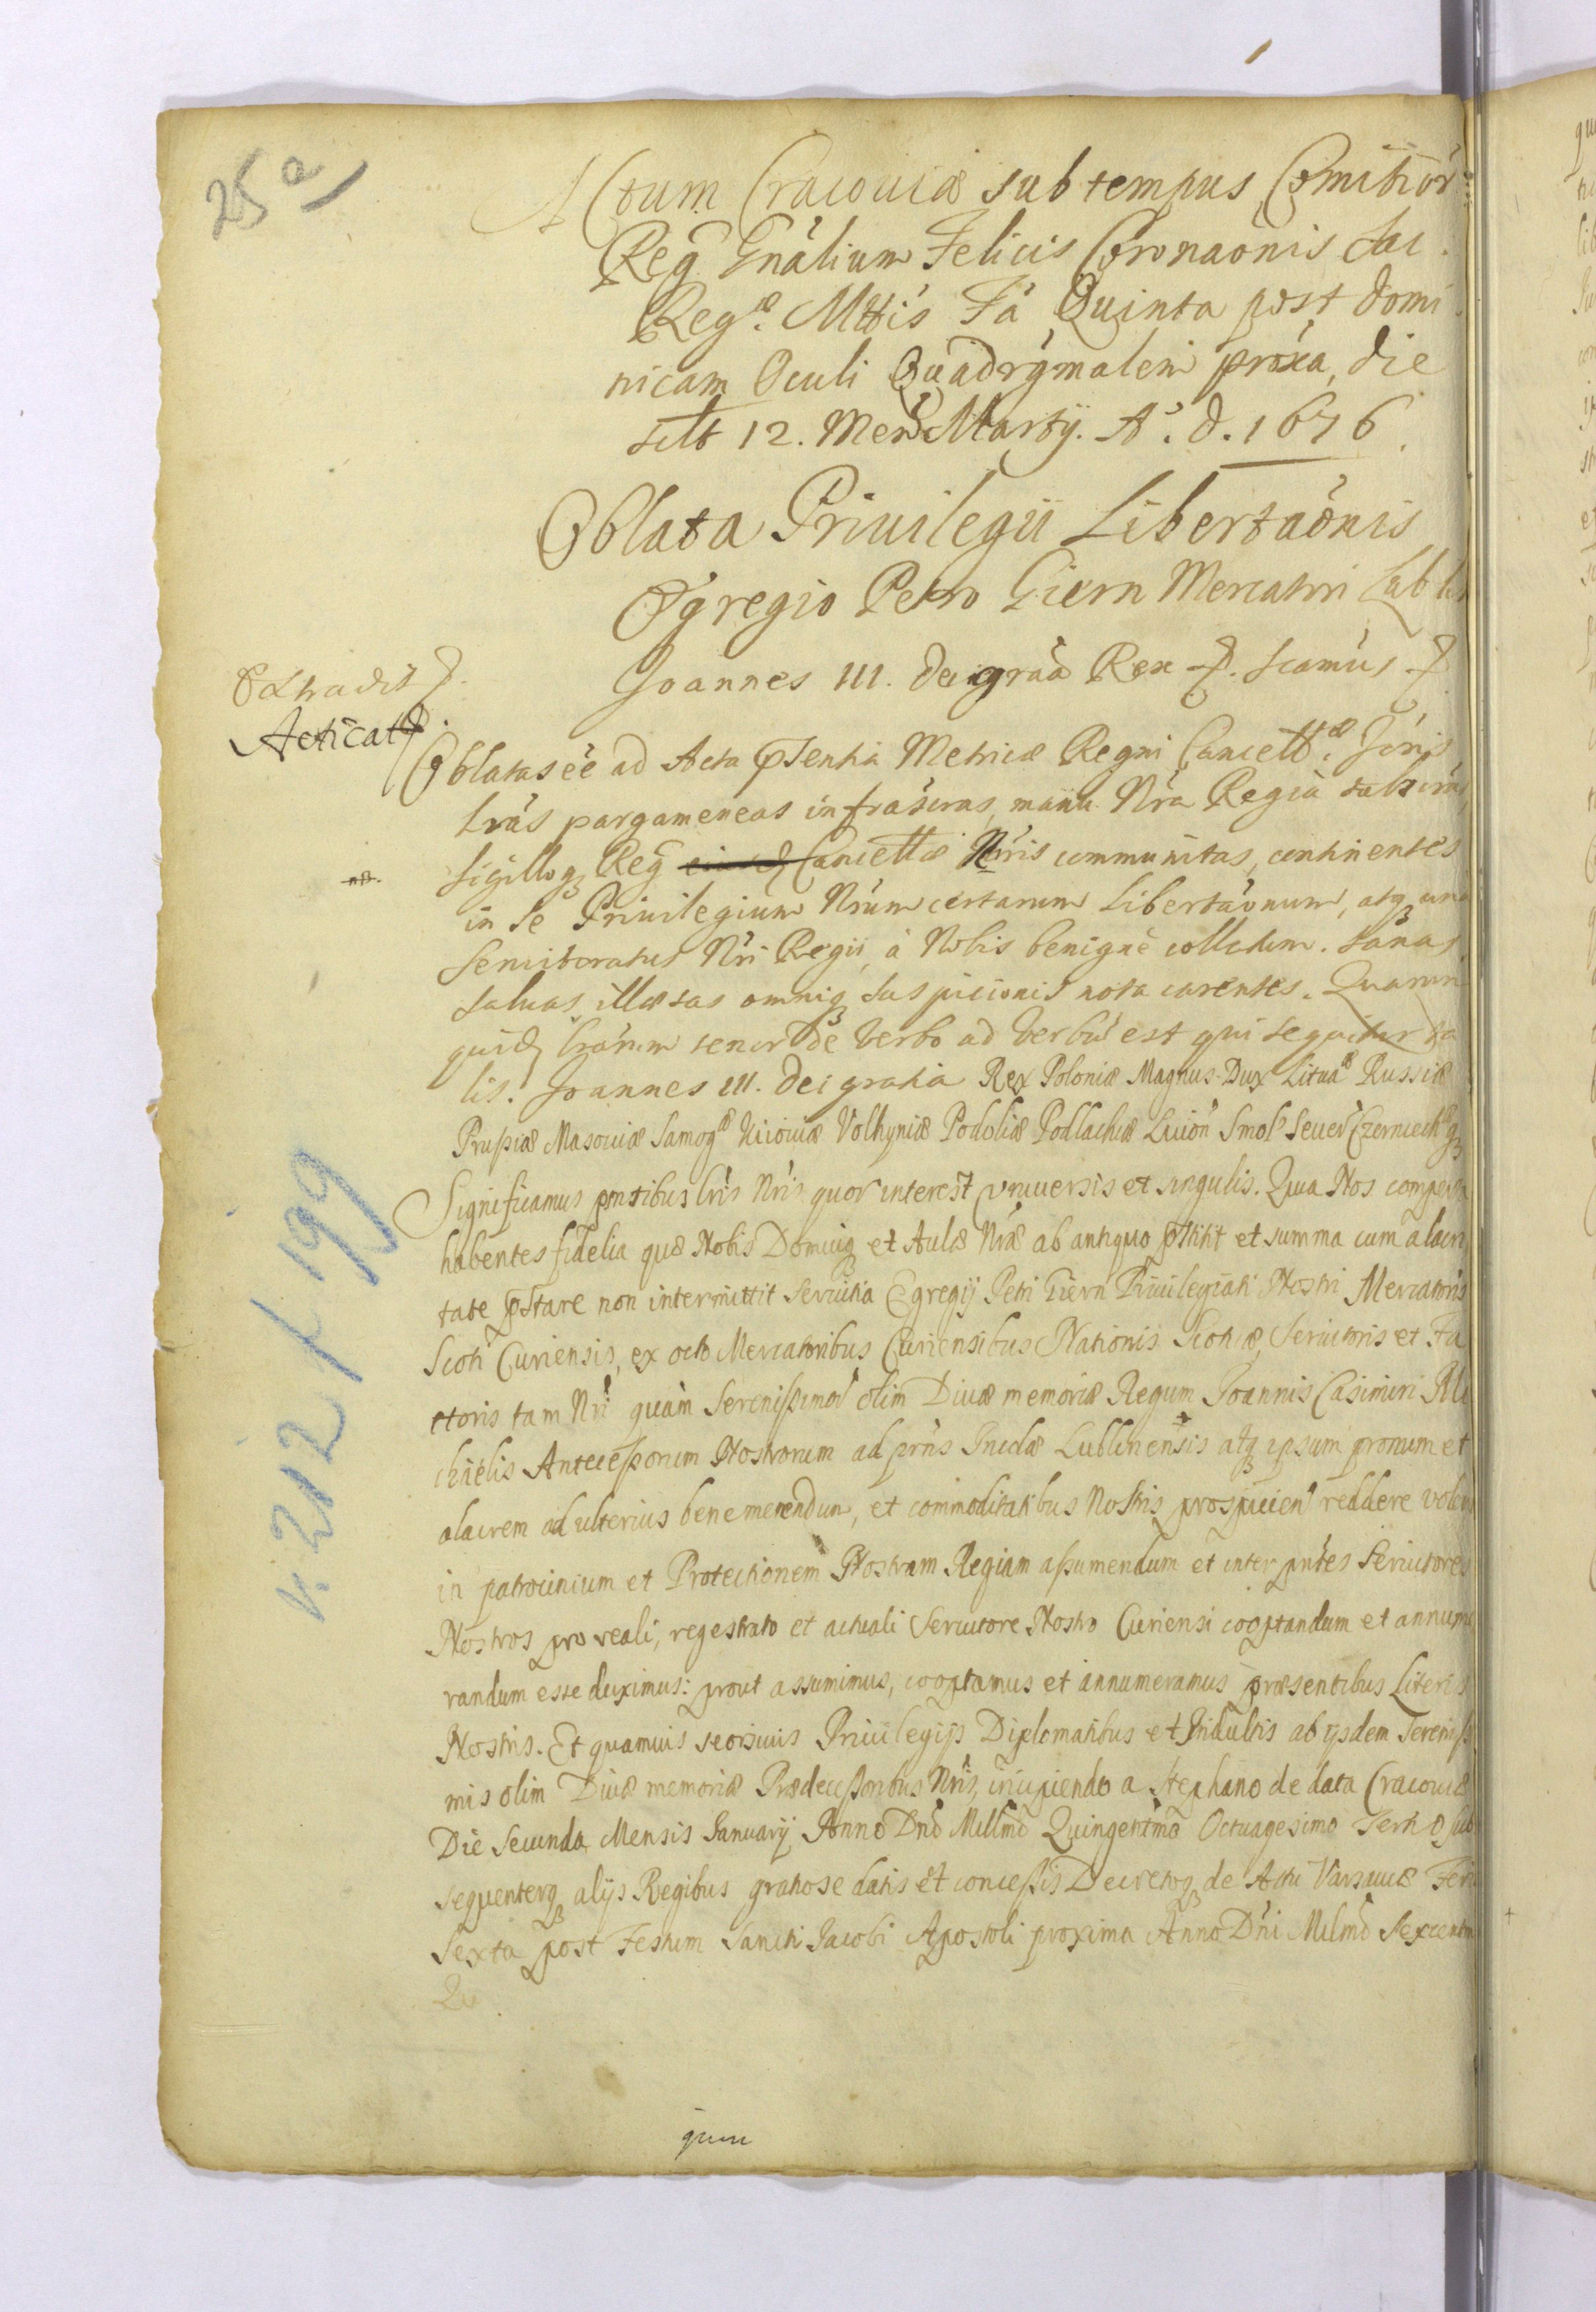 25 a
Actum Cracoviæ sub tempus Comitior
Reg Gnálium Felicis Coronaónis Sac.
Regᵉ. Mttis Fá Quinta post domi
nicam Oculi Quadrgmalem próxa, die
scilt 12. Mens Martÿ. Aº. d. 1676.
Oblata Priuilegii Libertaónis
Egregio Petro Giern Mercatori Lubli
Joannes III. Dei gráa Rex. Scamús
Extradit
Acticat
Oblatas eé ad Acta pñsentia Metricæ Regni Cancellæ
lrás pargameneas infrascras, manu Nrá Regiâ subscras,
sigilloq Reg Cancellæ Nris communitas, continentes
in se Priuilegium Nrúm certarum Libertaónum, atq una
Seruitoratus Nri Regii, à Nobis benignè collatum. Sanas
saluas illæsas omniq suspicionis nota carentes. Quarum
quid lrárum tenor de verbo ad verbú est qui sequitur ta
lis. Joannes III. Dei gratia Rex Poloniæ Magnus Dux Lituæ Russiæ
Prußiæ Masouiæ Samogæ Kiiouiæ Volhyniæ Podoliæ Podlachiæ Liuon Smol Seuer Czerniechq
Significamus pntibus lris Nris quor interest vniuersis et singulis. Quia Nos comperta
habentes fidelia quæ Nobis Domuiq et Aulæ Nræ ab antiquo pstitit et summa cum alacri
tate pstare non intermittit seruitia Egregij Petri Giern Priuilegiati Nostri Mercatoris
Scoti Curiensis, ex octo Mercatoribus Curiensibus Nationis Scoticæ, Seruitoris et Fa
ctoris tam Nri quàm Serenißimor olim Diuæ memoriæ Regum Joannis Casimiri Mi
chaëlis Anteceßorum Nostrorum ad prns Incolæ Lublinensis atq ipsum pronum et
alacrem ad ulterius benemerendum, et commoditatibus Nostris prospicien reddere volen
in patrocinium et Protectionem Nostram Regiam aßumendum et inter pntes Seruitores
Nostros pro reali, regestrato et actuali Seruitore Nostro Curiensi cooptandum et annume
randum esse duximus: prout assumimus, cooptamus et annumeramus præsentibus Literis
Nostris. Et quamuis seorsiuis Priuilegijs Diplomatibus et Indultis ab ijsdem Sereniß
mis olim Diuæ memoriæ Prædeceßoribus Nris, incipiendo a Stephano de data Cracouiæ
Die Secunda Mensis Januarij Anno Dnó Millmó Quingentmó Octuagesimo Tertio sub
sequenterq alijs Regibus gratiose datis et conceßis Decretoq de Actu Varsauiæ Feri
Sexta post Festum Sancti Jacobi Apostoli proxima Anno Dni Milmó Sexcentm
k. 212 f 199